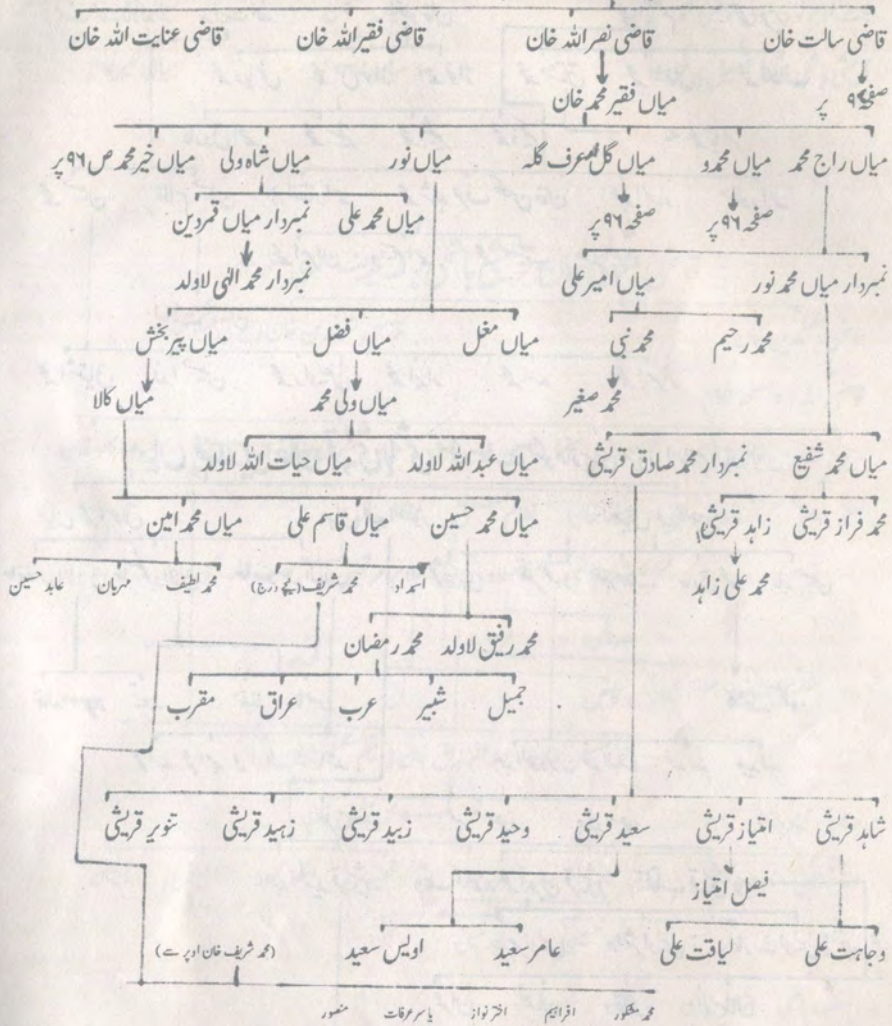 قاضی سالت خان قاضی نصر اللہ خان قاضی فقیر اللہ خان قاضی عنایت اللہ خان
صفحہ ۹۴ پر میاں فقیر محمد خان
میاں راج محمد میاں محمود میاں گل محمد عرف گلہ میاں نور میاں شاہ ولی میاں خیر محمد ص ۹۶ پر
صفحہ ۹۶ پر صفحہ ۹۶ پر میاں محمد علی نمبردار میاں قمردین
نمبردار میاں محمد نور میاں امیر علی نمبردار محمد الٰہی لاولد
محمد رحیم محمد نبی میاں مغل میاں فضل میاں پیر بخش
محمد صغیر میاں ولی محمد میاں کالا
میاں محمد شفیع نمبردار محمد صادق قریشی میاں عبد اللہ لاولد میاں حیات اللہ لاولد
محمد فراز قریشی زاہد قریشی میاں محمد حسین میاں قاسم علی میاں محمد امین
محمد علی زاہد امداد محمد شریف (نیچے درج) محمد لطیف مہربان عابد حسین
محمد رفیق لاولد محمد رمضان
جمیل شبیر عرب عراق مقرب
شاہد قریشی امتیاز قریشی سعید قریشی وحید قریشی زبید قریشی زبید قریشی تنویر قریشی
فیصل امتیاز
وجاہت علی لیاقت علی عامر سعید اویس سعید (محمد شریف خان اوپر سے)
محمد مشکور افراہیم اختر نواز یاسر عرفات منصور